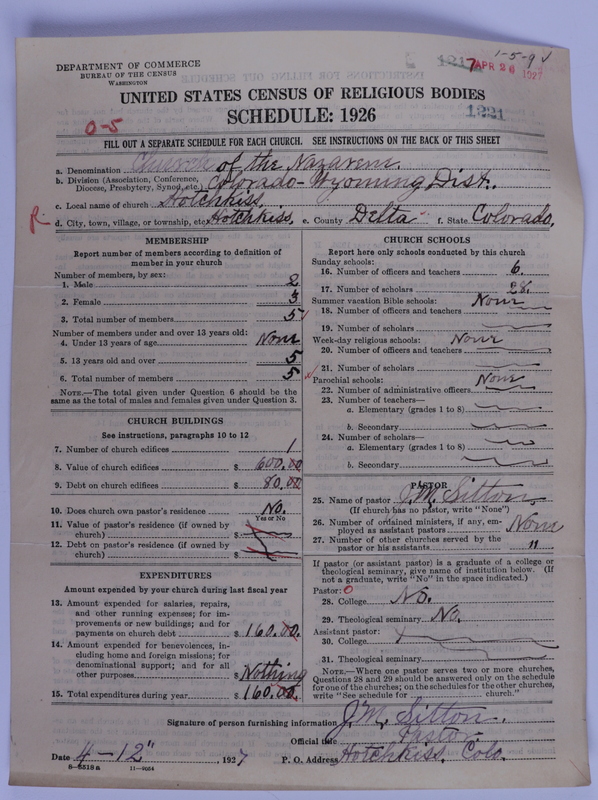 1-5-9
DEPARTMENT OF COMMERCE
BUREAU OF THE CENSUS
WASHINGTON
1217 APR 26 1927
UNITED STATES CENSUS OF RELIGIOUS BODIES
SCHEDULE: 1926
1221
0-5
FILL OUT A SEPARATE SCHEDULE FOR EACH CHURCH. SEE INSTRUCTIONS ON THE BACK OF THIS SHEET
a. Denomination Church of the Nazarene
b. Division (Association, Conference, Diocese, Presbytery, Synod, etc.) Colorado-Wyoming Dist.
c. Local name of church Hotchkiss.
R. d. City, town, village, or township, etc. Hotchkiss. e. County Delta f. State Colorado.
MEMBERSHIP
Report number of members according to definition of
member in your church
Number of members, by sex:
1. Male 2
2. Female 3
3. Total number of members 5
Number of members under and over 13 years old:
4. Under 13 years of age None
5. 13 years old and over 5
6. Total number of members 5
NOTE.—The total given under Question 6 should be
same as the total of males and females given under Question 3.
CHURCH BUILDINGS
See instructions, paragraphs 10 to 12
7. Number of church edifices 1
8. Value of church edifices $ 600.00
9. Debt on church edifices $ 80.00
10. Does church own pastor's residence? No.
Yes or No
11. Value of pastor's residence (if owned by
church) $
12. Debt on pastor's residence (if owned by
church) $
EXPENDITURES
Amount expended by your church during last fiscal year
13. Amount expended for salaries, repairs,
and other running expenses; for im-
provements or new buildings; and for
payments on church debt $ 160.00.
14. Amount expended for benevolences, in-
cluding home and foreign missions; for
denominational support; and for all
other purposes $ Nothing
15. Total expenditures during year $ 160.00.
CHURCH SCHOOLS
Report here only schools conducted by this church
Sunday schools:
16. Number of officers and teachers 6.
17. Number of scholars 28.
Summer vacation Bible schools: None
18. Number of officers and teachers
19. Number of scholars
Week-day religious schools: None
20. Number of officers and teachers
21. Number of scholars
Parochial schools: None
22. Number of administrative officers
23. Number of teachers—
a. Elementary (grades 1 to 8)
b. Secondary
24. Number of scholars—
a. Elementary (grades 1 to 8)
b. Secondary
PASTOR
25. Name of pastor J.M. Sitton.
(If church has no pastor, write "None")
26. Number of ordained ministers, if any, em-
ployed as assistant pastors None
27. Number of other churches served by the
pastor or his assistants "
If pastor (or assistant pastor) is a graduate of a college or
theological seminary, give name of institution below. (If
not a graduate, write "No" in the space indicated.)
Pastor: 0
28. College No.
29. Theological seminary No.
Assistant pastor:
30. College
31. Theological seminary
NOTE.—Where one pastor serves two or more churches,
Questions 28 and 29 should be answered only on the schedule
for one of the churches; on the schedules for the other churches,
write "See schedule for church."
Signature of person furnishing information J.M. Sitton.
Official title Pastor.
Date 4-12" 1927 P. O. Address Hotchkiss, Colo.
8-5518 a 11-9054